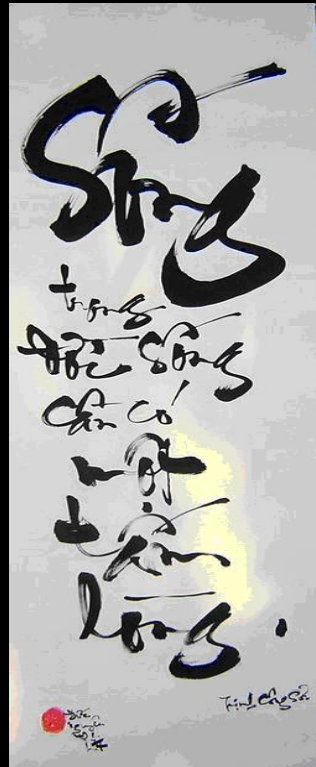 Sống
trong
đời sống
cần có
một
tấm
lòng.
Trịnh Công Sơn